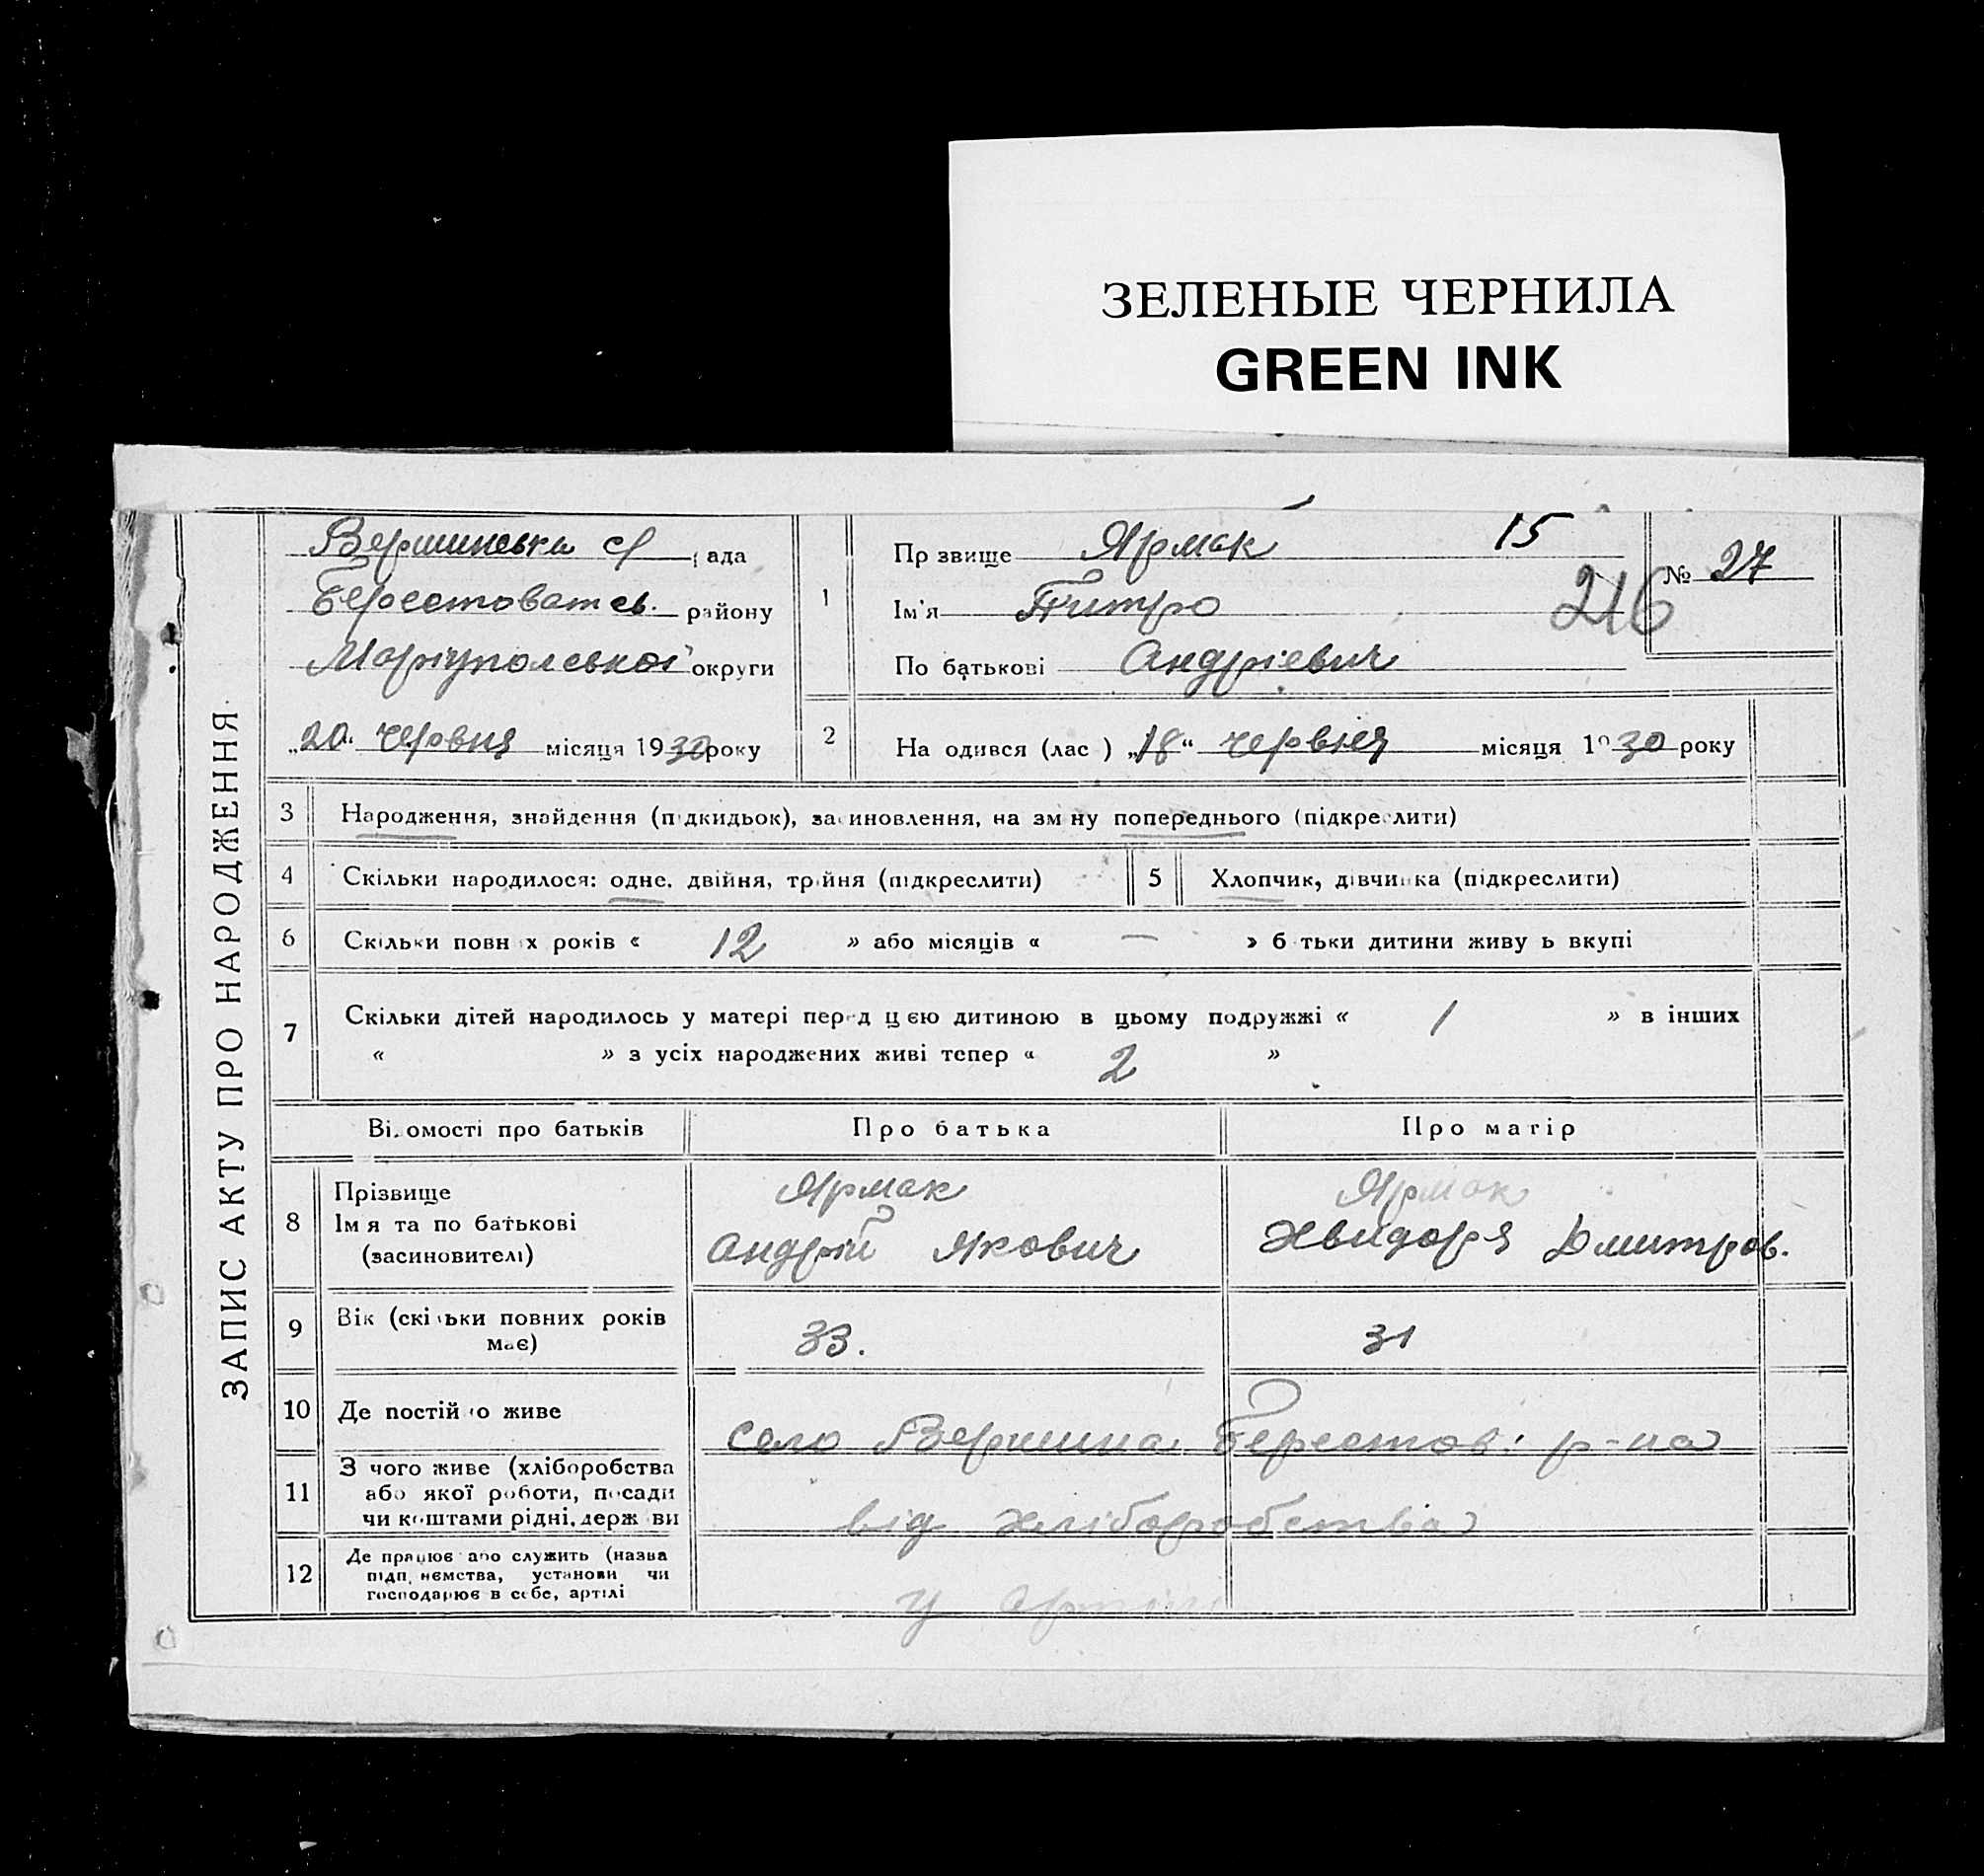 ЗЕЛЕНЫЕ ЧЕРНИЛА
GREEN INK
ЗАПИС АКТУ ПРО НАРОДЖЕННЯ
Вершинська с/ рада
Берестоватсь. району
Маріупольської округи
„20“ червня місяця 1930 року
1
Прізвище Ярмак 15
Ім'я Питро
216
По батькові Андрієвич
№ 27
2 На одився (лас ) „18“ червня місяця 1930 року
3 Народження, знайдення (підкидьок), засиновлення, на зміну попереднього (підкреслити)
4 Скільки народилося: одне, двійня, трійня (підкреслити)
5 Хлопчик, дівчинка (підкреслити)
6 Скільки повних років « 12 » або місяців « — » батьки дитини живуть вкупі
7 Скільки дітей народилось у матері перед цією дитиною в цьому подружжі « 1 » в інших
« » з усіх народжених живі тепер « 2 »
Відомості про батьків Про батька Про матір
8 Прізвище Ярмак Ярмак
Ім я та по батькові Андрій Якович Хвидоря Дмитров.
(засиновителі)
9 Вік (скільки повних років має) 33. 31
10 Де постійно живе село Вершина Берестов: р-на
11 З чого живе (хліборобства
або якої роботи, посади
чи коштами рідні, держави від хліборобства
12 Де працює або служить (назва
підприємства, установи чи
господарює в себе, артілі у Артілі